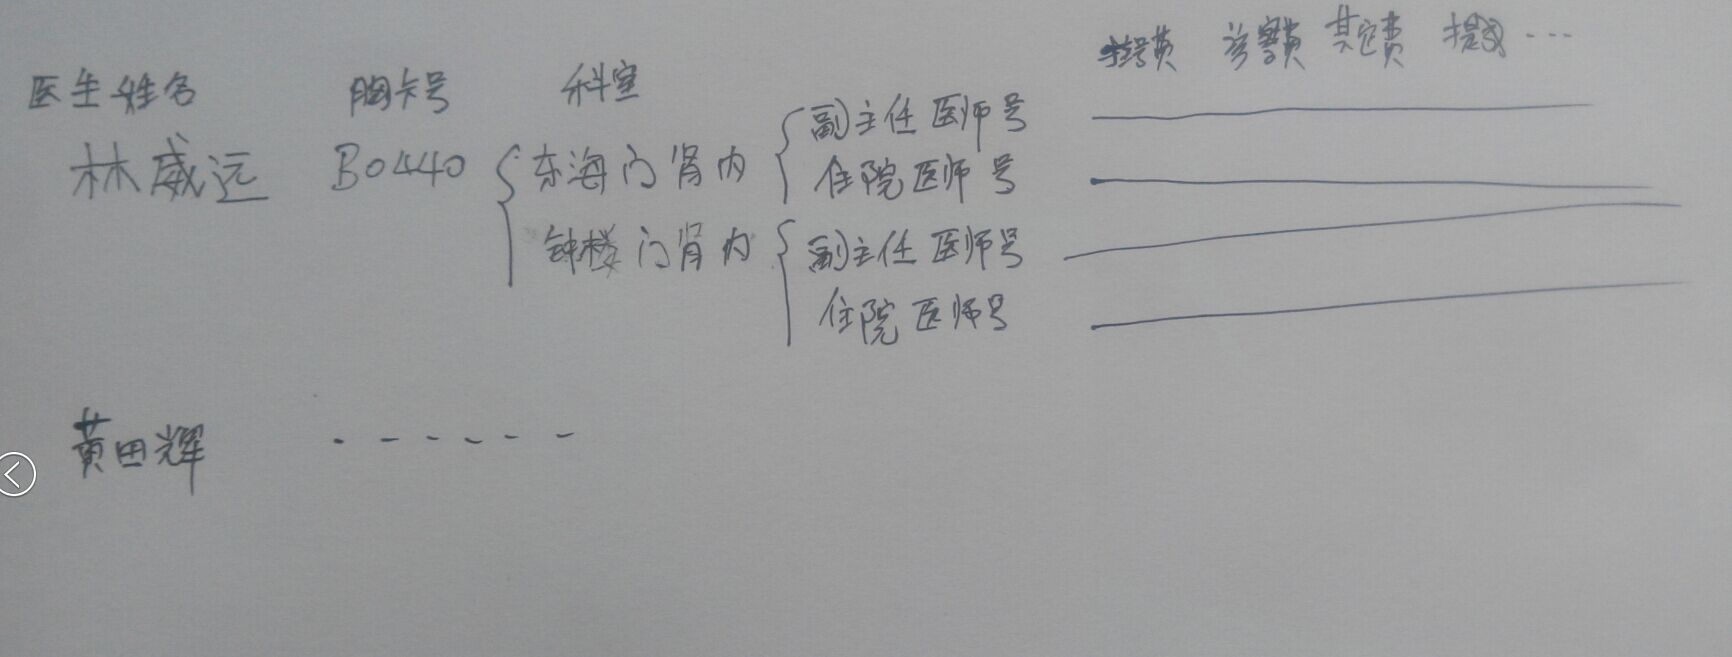 挂号费 诊察费 其它费 提成 ...
医生姓名 胸卡号 科室
副主任医师号
林威远 B0440 东海门肾内 住院医师号
钟楼门肾内 副主任医师号
住院医师号
黄田辉 ------